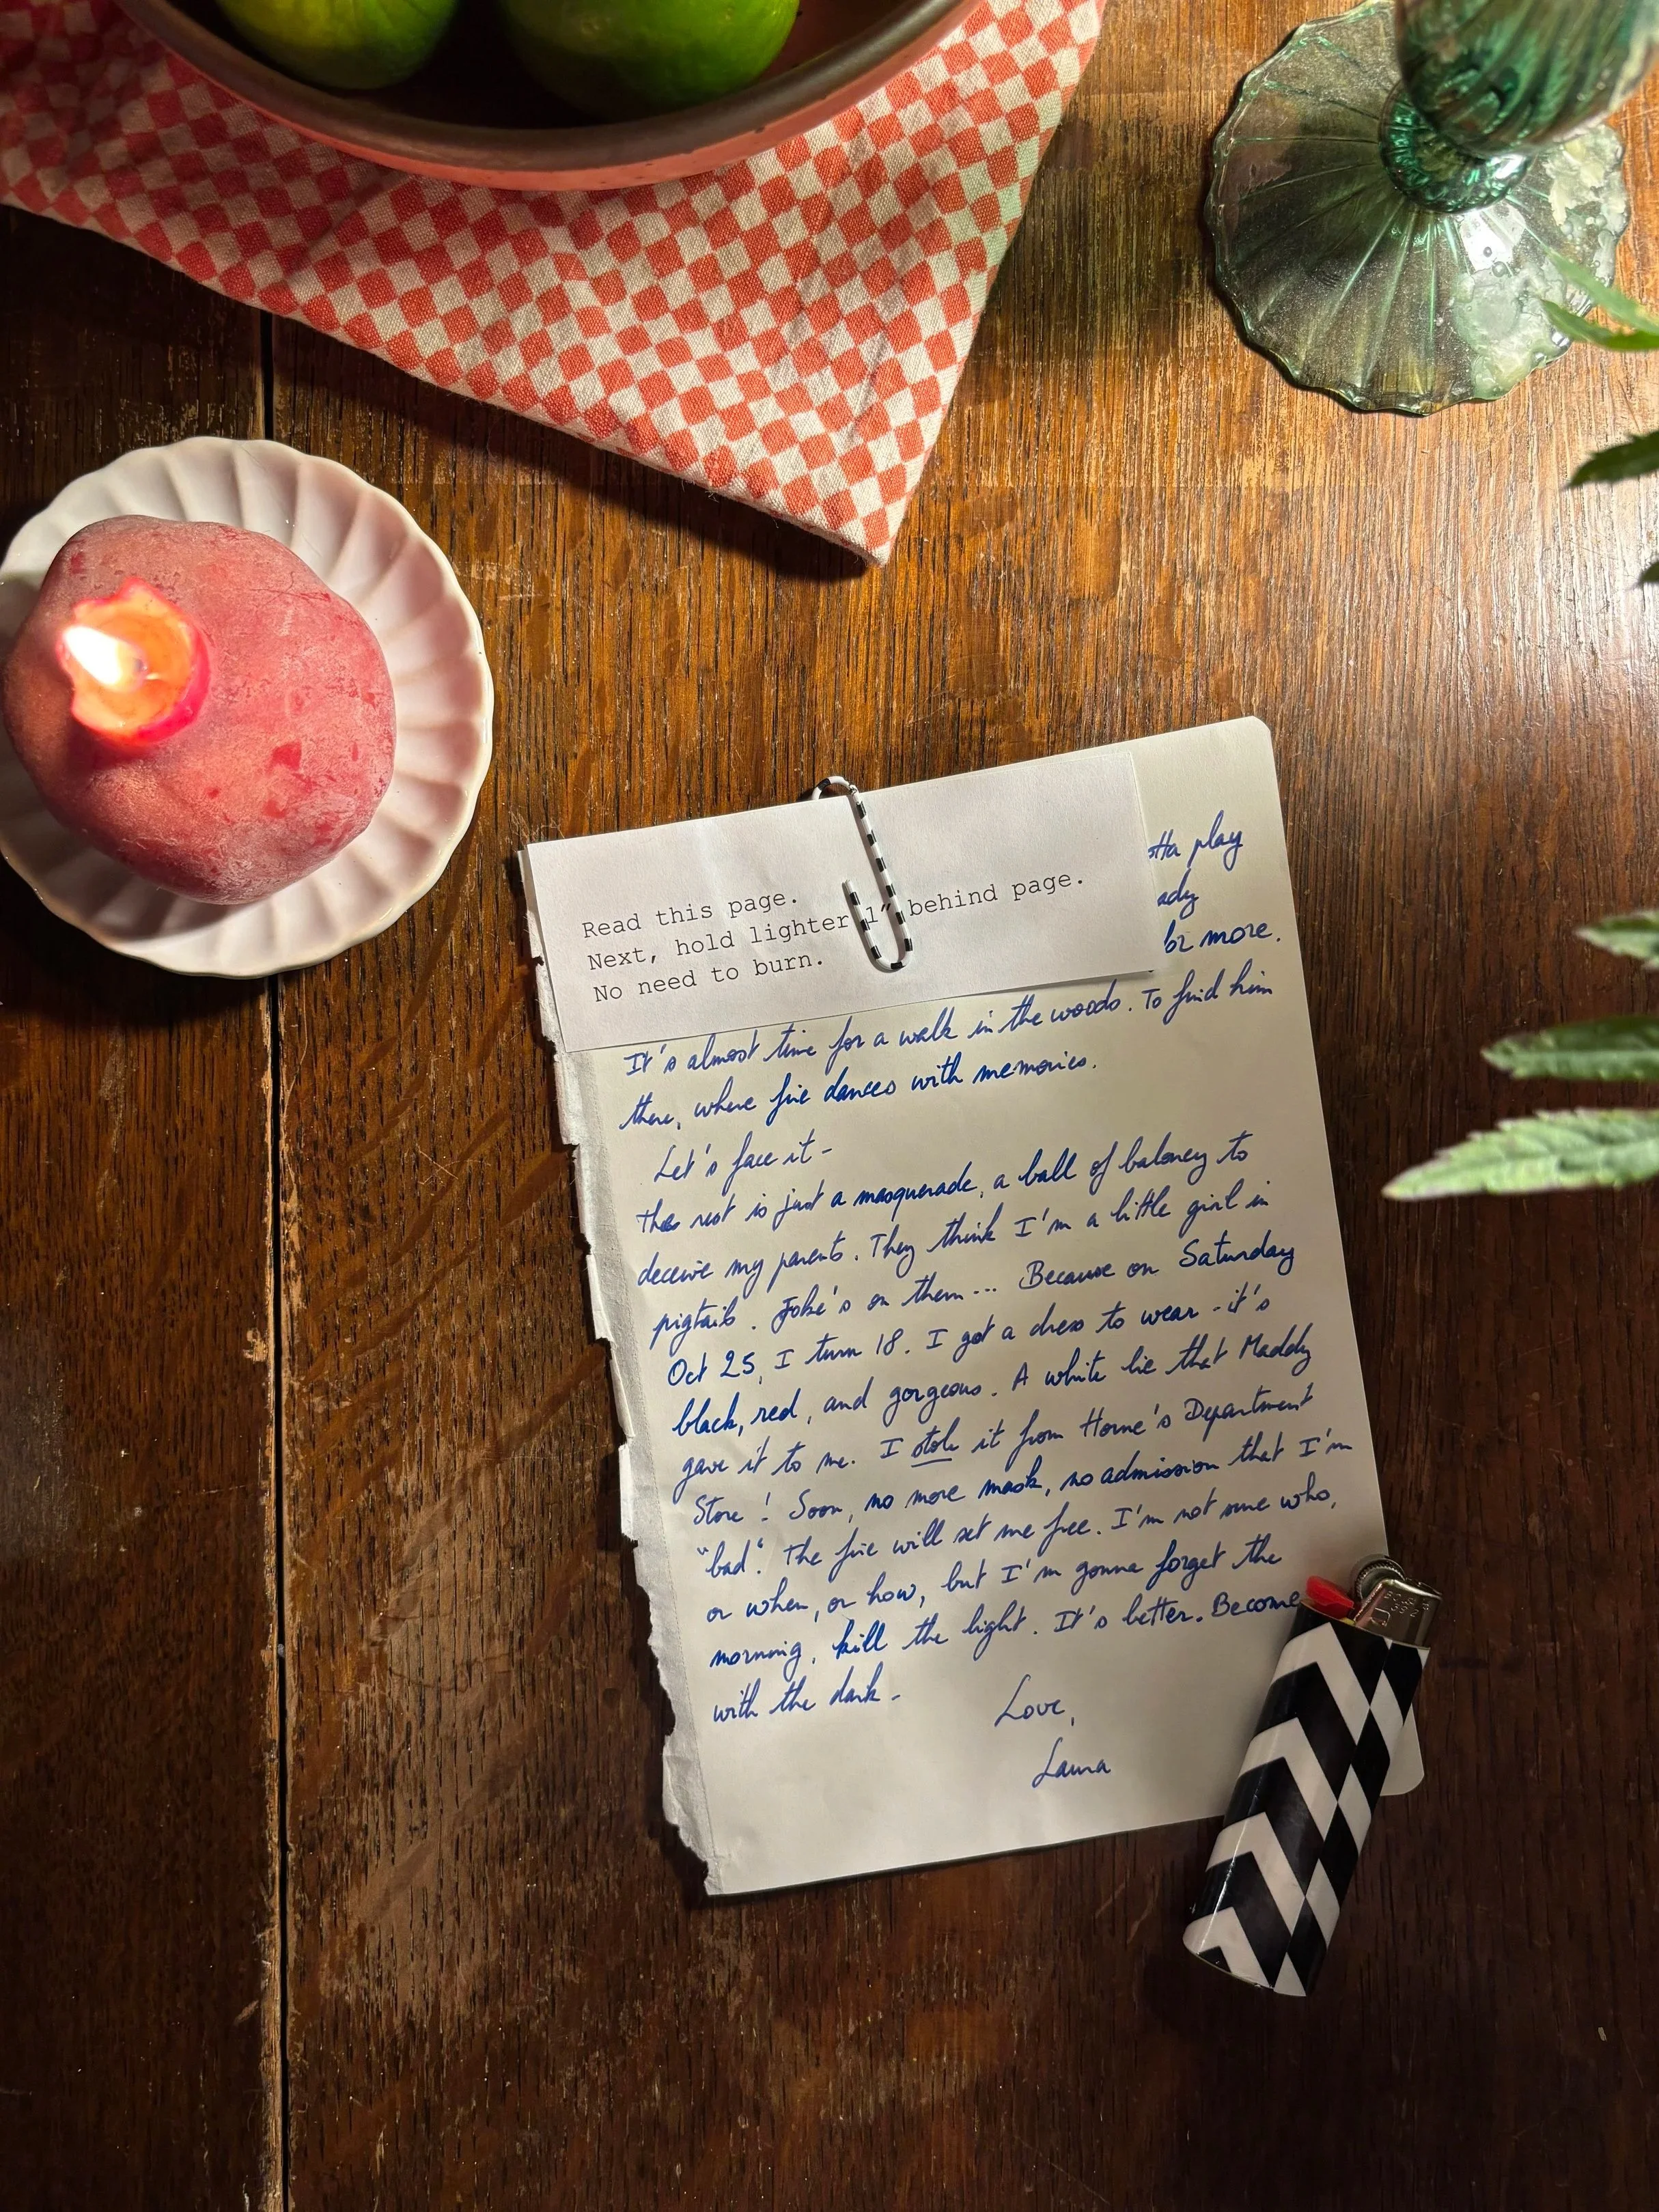 Read this page.
Next, hold lighter 1" behind page.
No need to burn.
play
for more.
It's almost time for a walk in the woods. To find him
there, where fire dances with memories.
Let's face it -
the rest is just a masquerade, a ball of baloney to
deceive my parents. They think I'm a little girl in
pigtails. Joke's on them... Because on Saturday
Oct 25, I turn 18. I got a dress to wear - it's
black, red, and gorgeous. A white lie that Maddy
gave it to me. I stole it from Horne's Department
Store! Soon, no more mask, no admission that I'm
"bad". The fire will set me free. I'm not sure who,
or when, or how, but I'm gonna forget the
morning, kill the light. It's better. Become
with the dark -
Love,
Laura